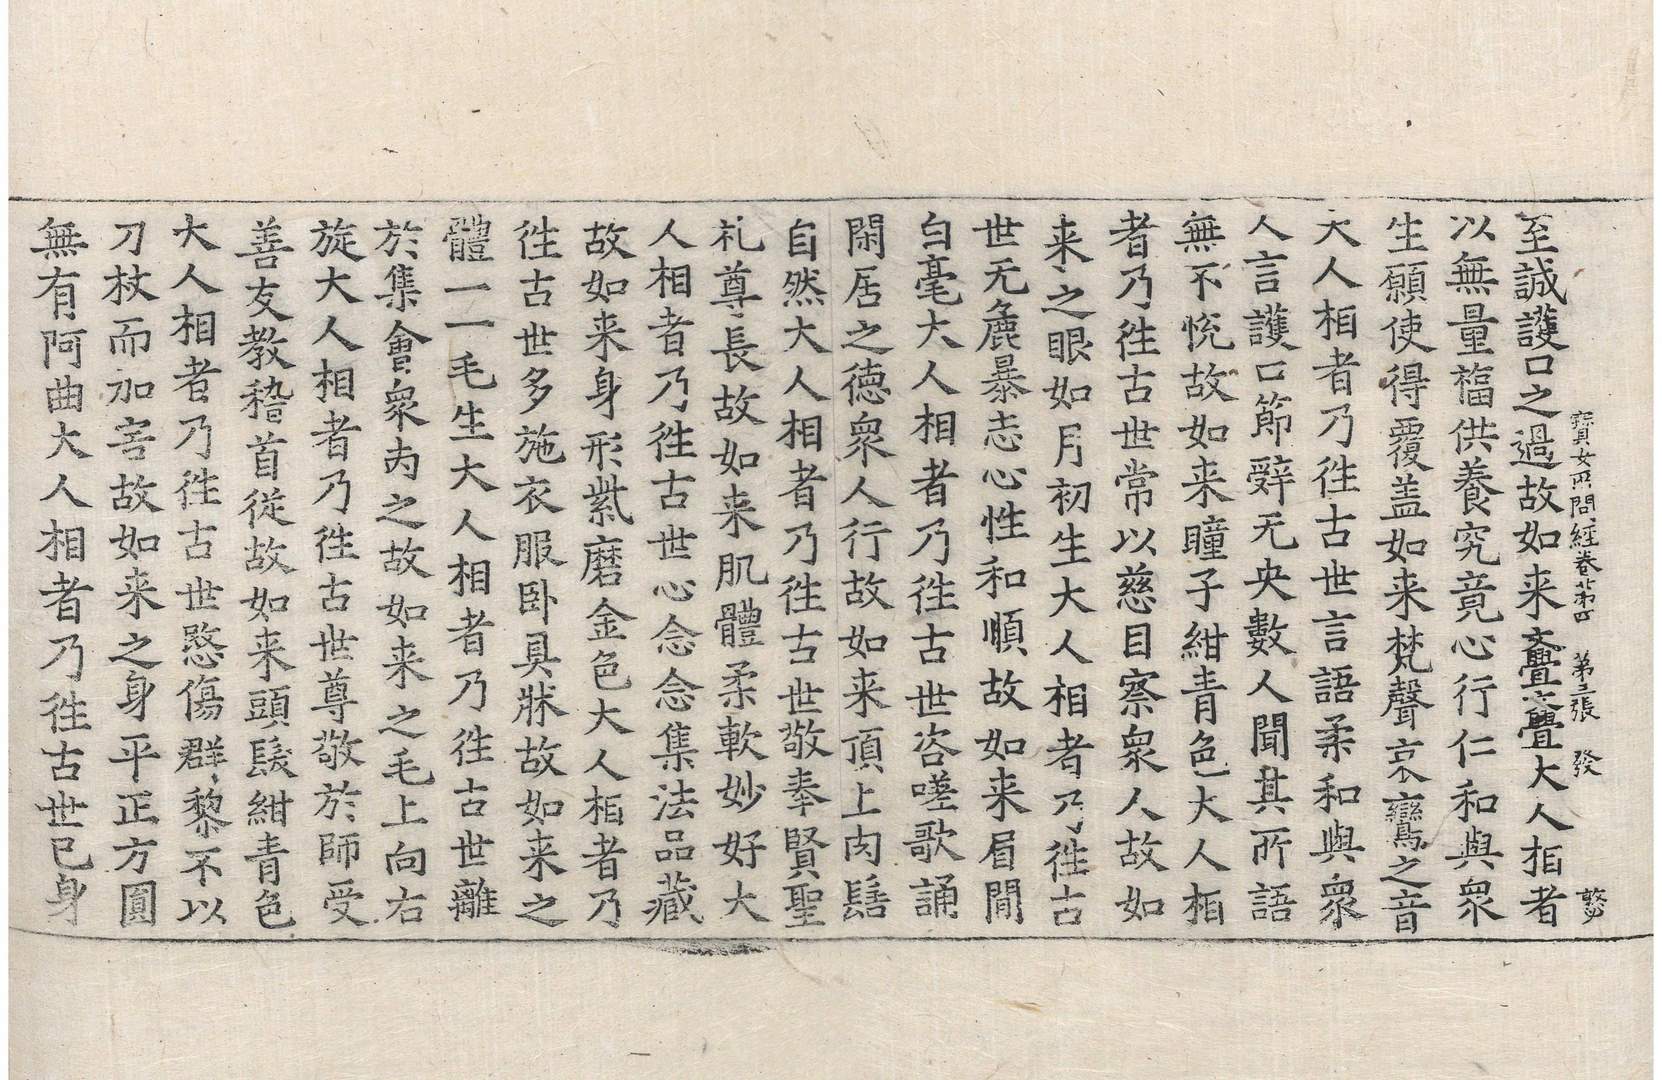 至誠護口之過故如来亹亹大人相者
寶女所問經卷第四　第三張　發
以無量福供養究竟心行仁和與衆
生願使得覆盖如来梵聲哀鸞之音
大人相者乃徃古世言語柔和與衆
人言護口節辤无央數人聞其所語
無不恱故如来瞳子紺青色大人相
者乃徃古世常以慈目察衆人故如
来之眼如月初生大人相者乃徃古
世无麁暴志心性和順故如来眉間
白毫大人相者乃徃古世咨嗟歌誦
閑居之徳衆人行故如来頂上肉髻
自然大人相者乃徃古世敬奉賢聖
礼尊長故如来肌體柔軟妙好大
人相者乃徃古世心念念集法品藏
故如来身形紫磨金色大人相者乃
徃古世多施衣服卧具牀故如来之
體一一毛生大人相者乃徃古世離
於集會衆内之故如来之毛上向右
旋大人相者乃徃古世尊敬於師受
善友教稽首従故如来頭髮紺青色
大人相者乃徃古世愍傷群黎不以
刀杖而加害故如来之身平正方圓
無有阿曲大人相者乃徃古世己身